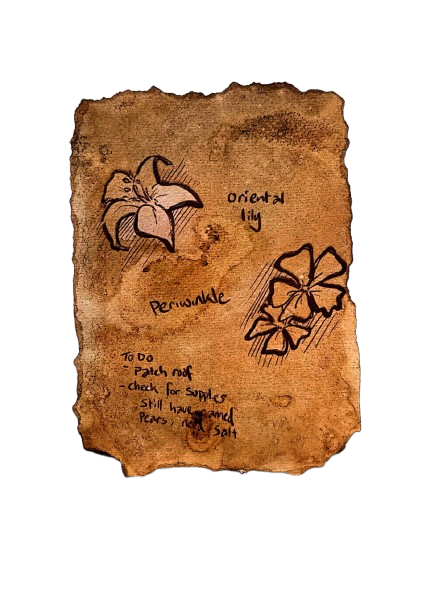 oriental
lily
Periwinkle
To Do
- Patch roof
- check for Supplies
Still have
Pears, need Salt